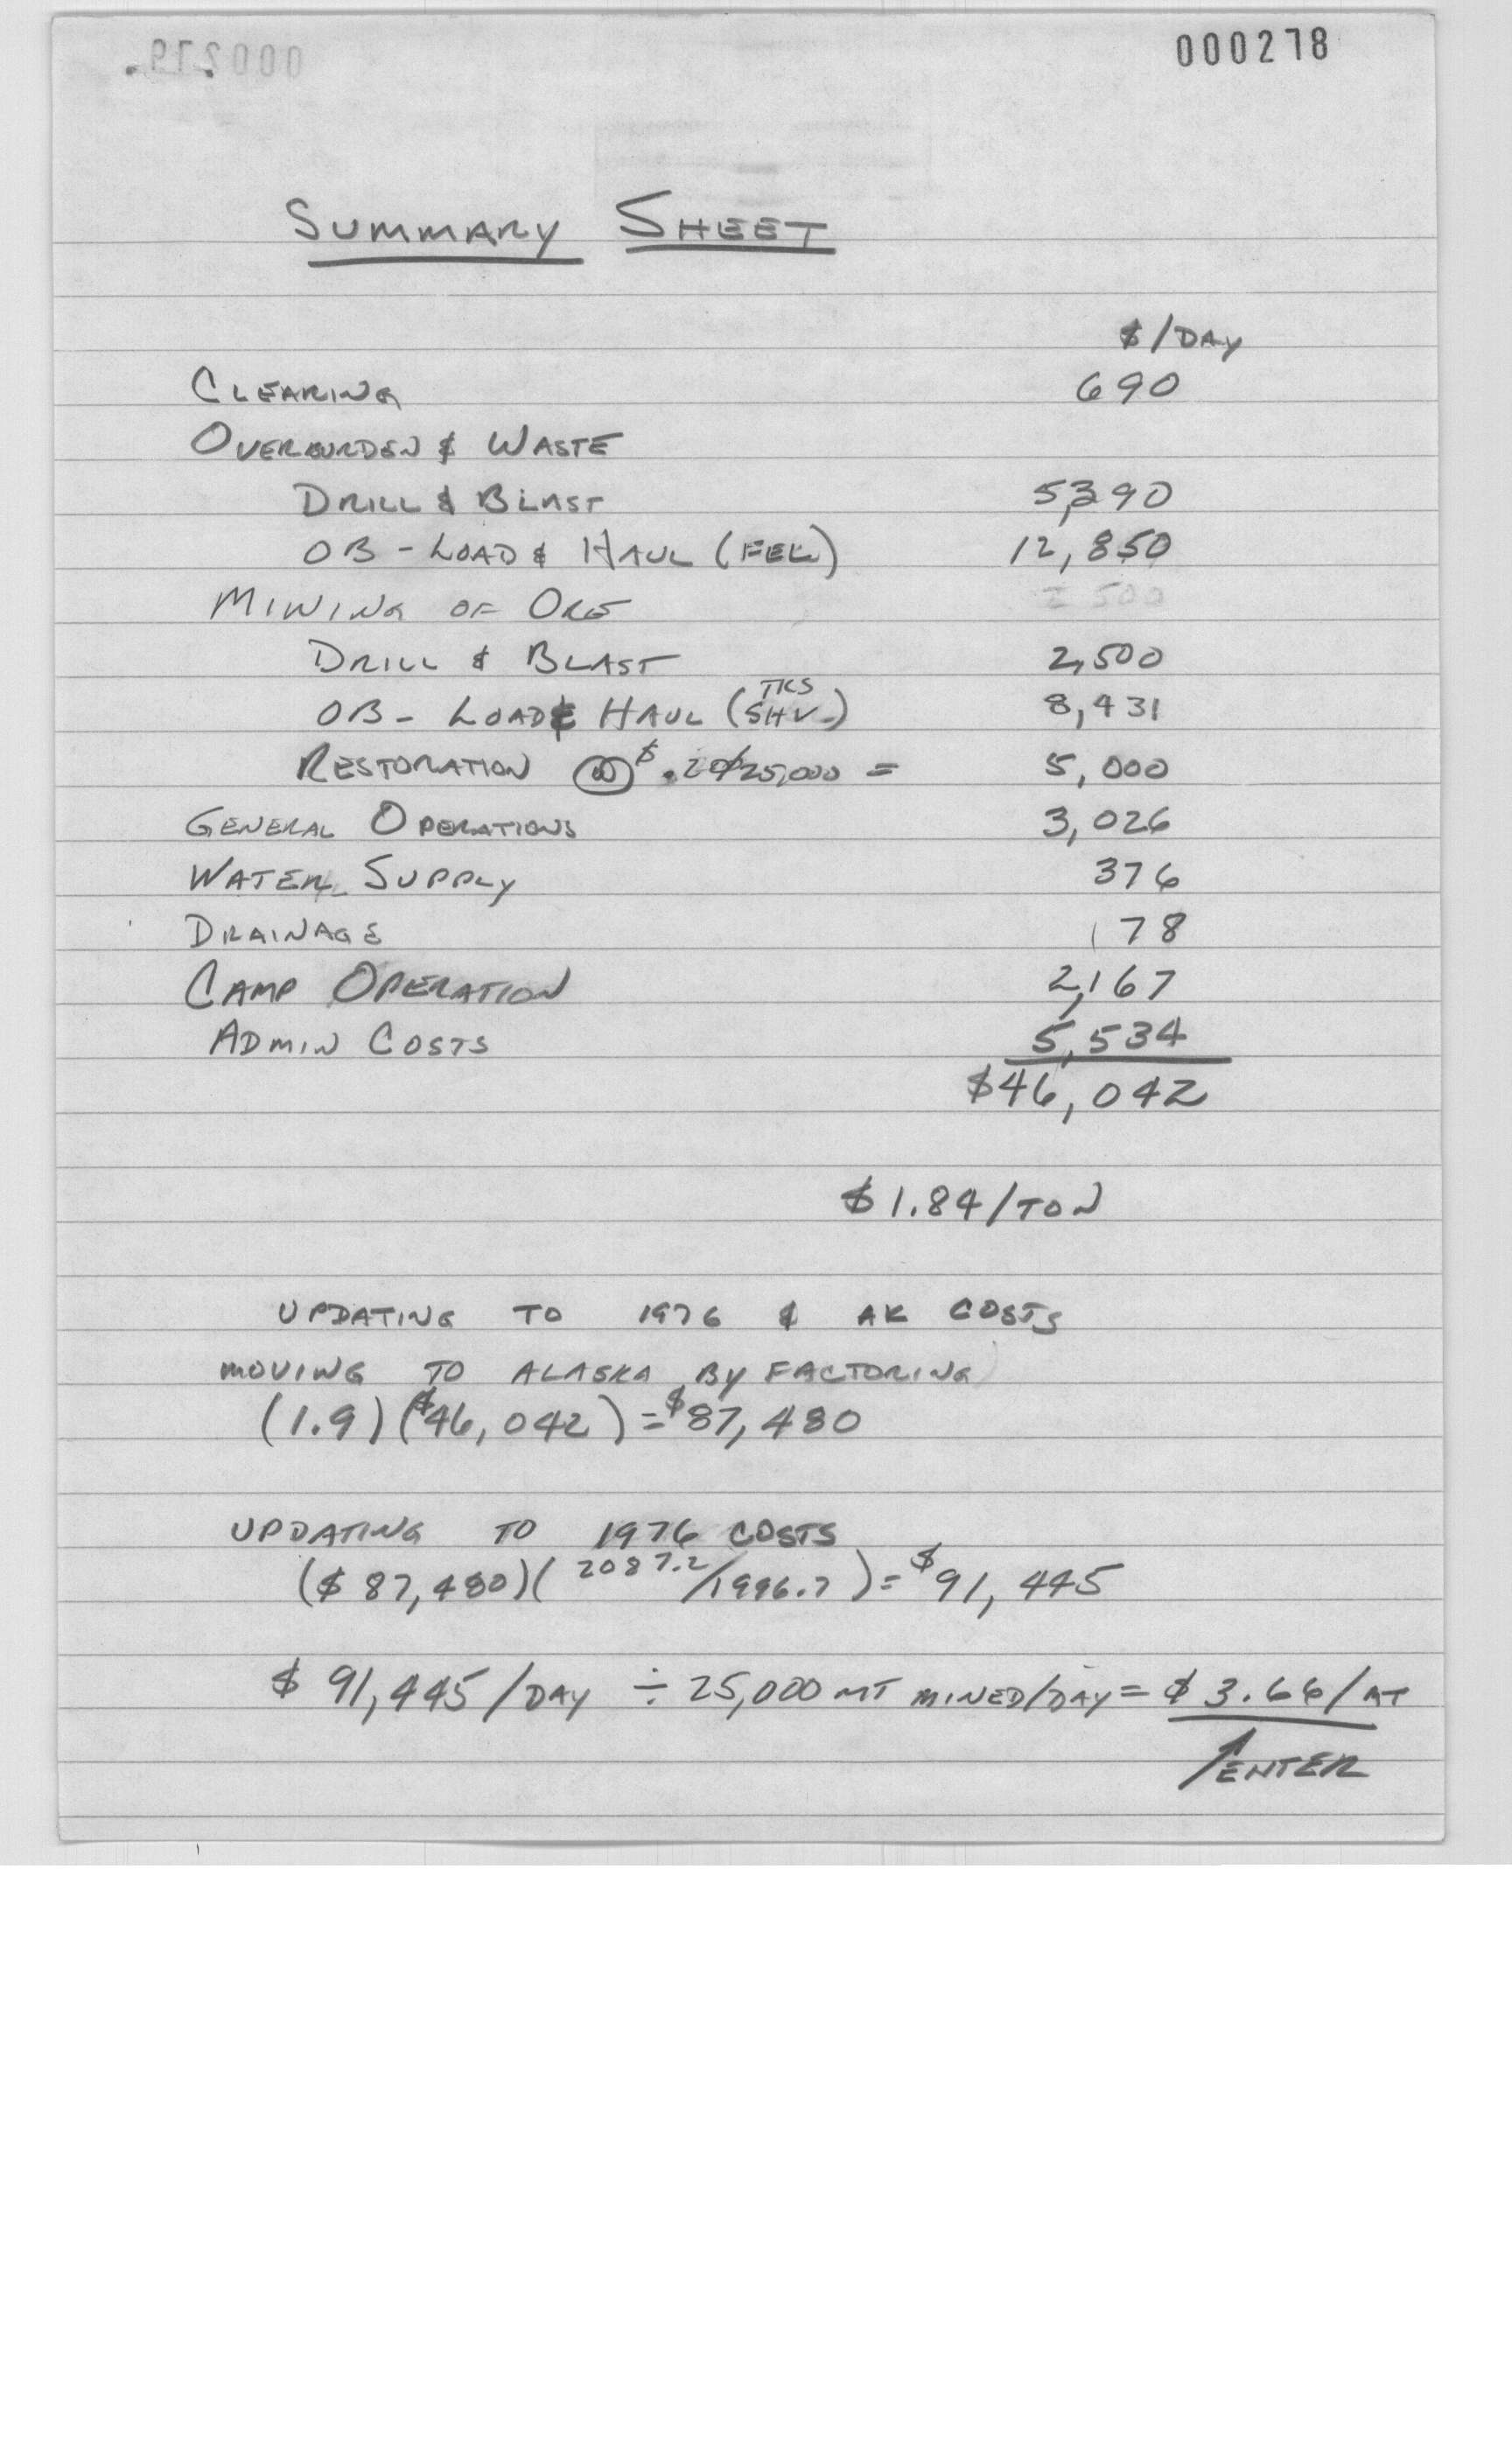 000278
SUMMARY SHEET
$/DAY
CLEARING 690
OVERBURDEN & WASTE
DRILL & BLAST 5,290
OB - LOAD & HAUL (FEL) 12,850
MINING OF ORE
DRILL & BLAST 2,500
OB - LOAD & HAUL (TKS SHV-) 8,431
RESTORATION @ $.20/25,000 = 5,000
GENERAL OPERATIONS 3,026
WATER SUPPLY 376
DRAINAGE 178
CAMP OPERATION 2,167
ADMIN COSTS 5,534
$46,042
$1.84/TON
UPDATING TO 1976 & AK COSTS
MOVING TO ALASKA BY FACTORING
(1.9)($46,042) = $87,480
UPDATING TO 1976 COSTS
($87,480)(2087.2/1996.7) = $91,445
$91,445/DAY ÷ 25,000 MT MINED/DAY = $3.66/MT
ENTER